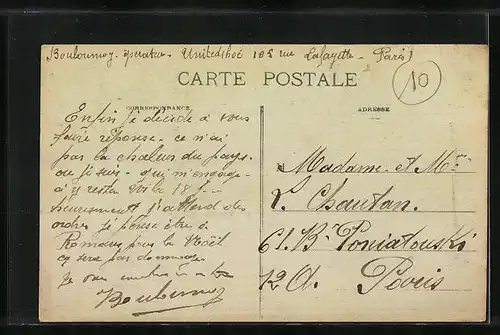 Bouloumoy - operateur - Unitedshoe 105 rue Lafayette - Paris)
CARTE POSTALE
10
CORRESPONDANCE
ADRESSE
Enfin je décide à vous
faire réponse - ce n'ai
pas la chaleur du pays
ou je suis - qui m'engage
à y rester
heureusement j'attend des
ordres je pense être à
Romans pour la Noël
ça sera pas dommage
Je vous
Madame et Mr
L. Chautan
61. Bd Poniatowski
12 A. Paris